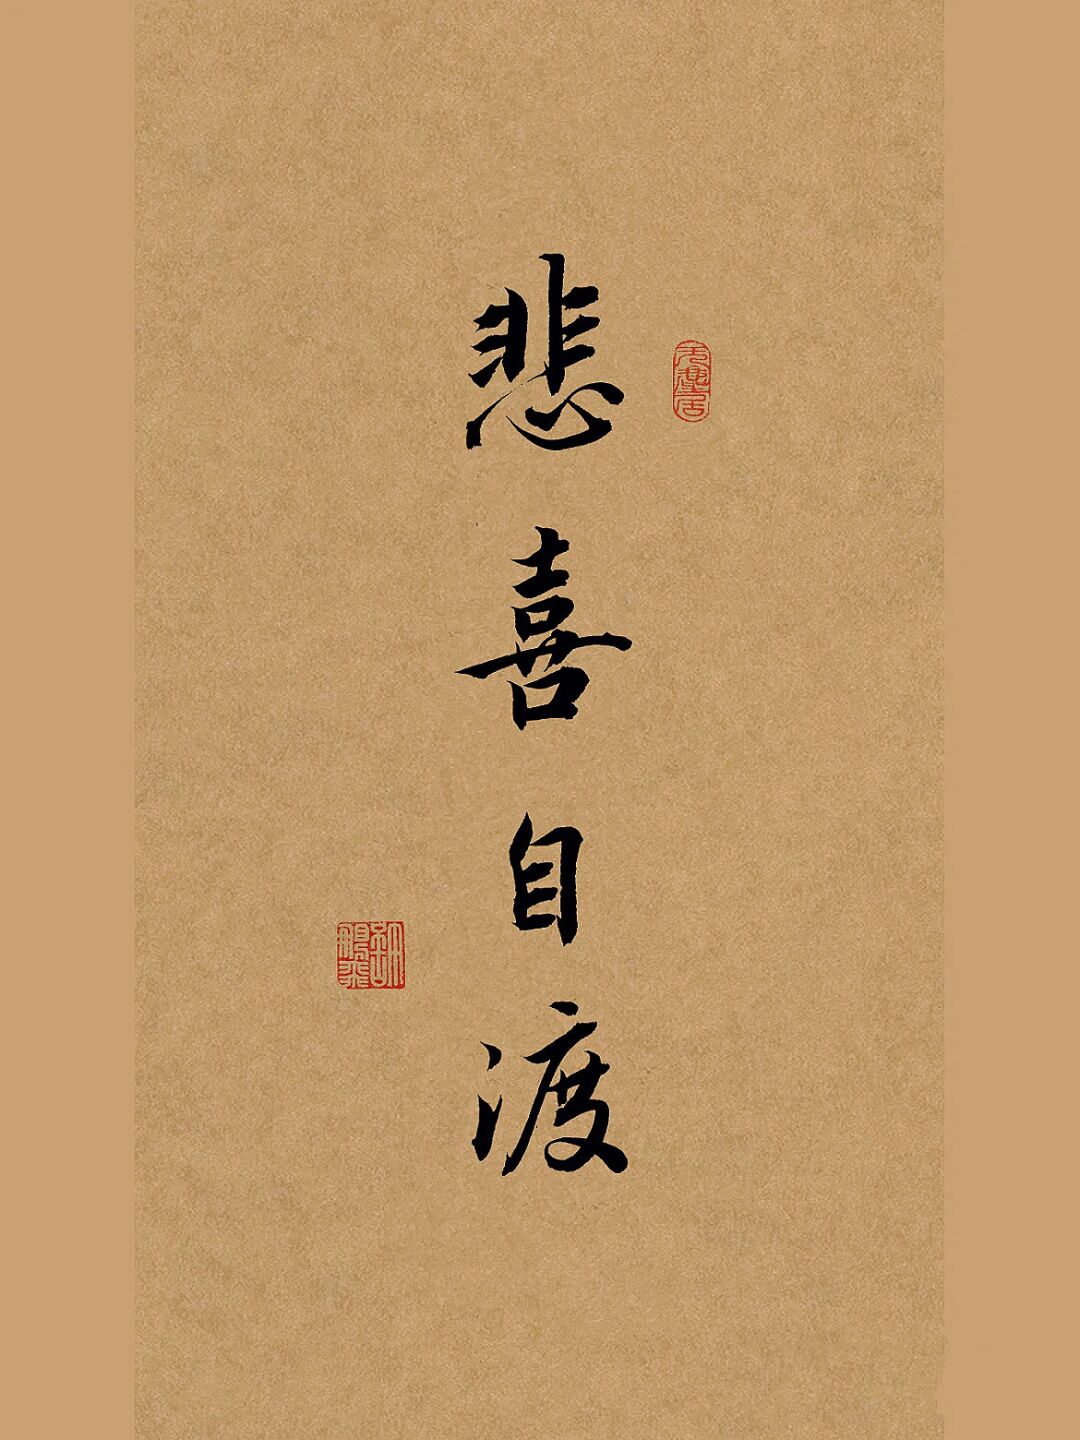 悲喜自渡